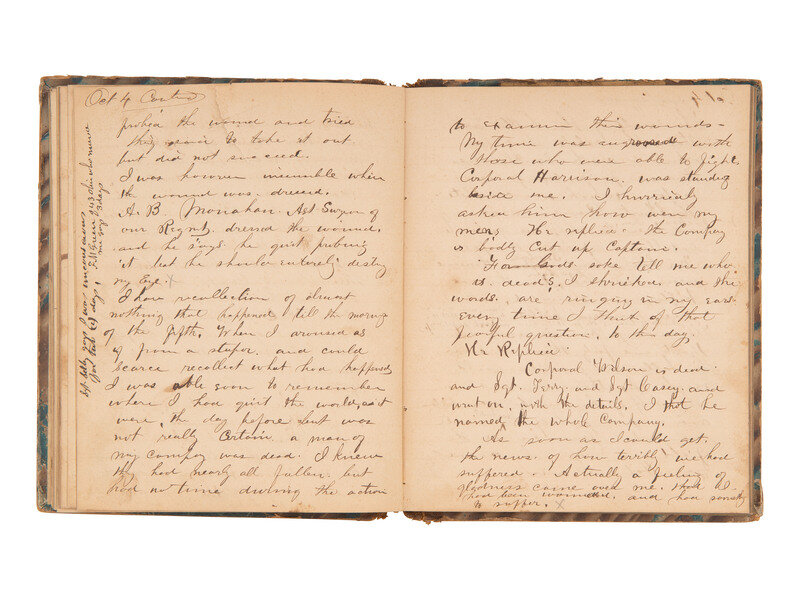 Oct 4 Contd
probed the wound and tried
to take it out
but did not succeed.
I was however insensible when
the wound was dressed.
A. B. Monahan. Ast Surgeon of
our Regmt, dressed the wound.
and he says he quit probing
it lest he should entirely destroy
my Eye. X
I have recollection of almost
nothing that happened till the morning
of the fifth. When I aroused as
if from a stupor. and could
scarce recollect what had happened
I was able soon to remember
where I had quit the world, as it
were, the day before but was
not really certain a man of
my Company was dead. I knew
they had nearly all fallen but
had no time during the action
Sgt says I was unconscious
for two (2) days.
me says 3 days
to examine their wounds-
My time was engrossed with
those who were able to fight.
Corporal Harrison. was standing
beside me. I hurriedly
asked him how were my
men, He replied. the Company
is badly cut up Captain.
For Gods sake tell me who
is dead, I shrieked and the
words. are ringing in my ears
every time I think of that
fearful question, to this day.
He Replied
Corporal Wilson is dead
and Sgt. Terry. and Sgt Casey. and
went on, with the details. I that he
named the whole Company.
As soon as I could get.
the news. of how terribly we had
suffered. Actually a feeling of
gladness came over me, that I
had been wounded, and had
to suffer. X